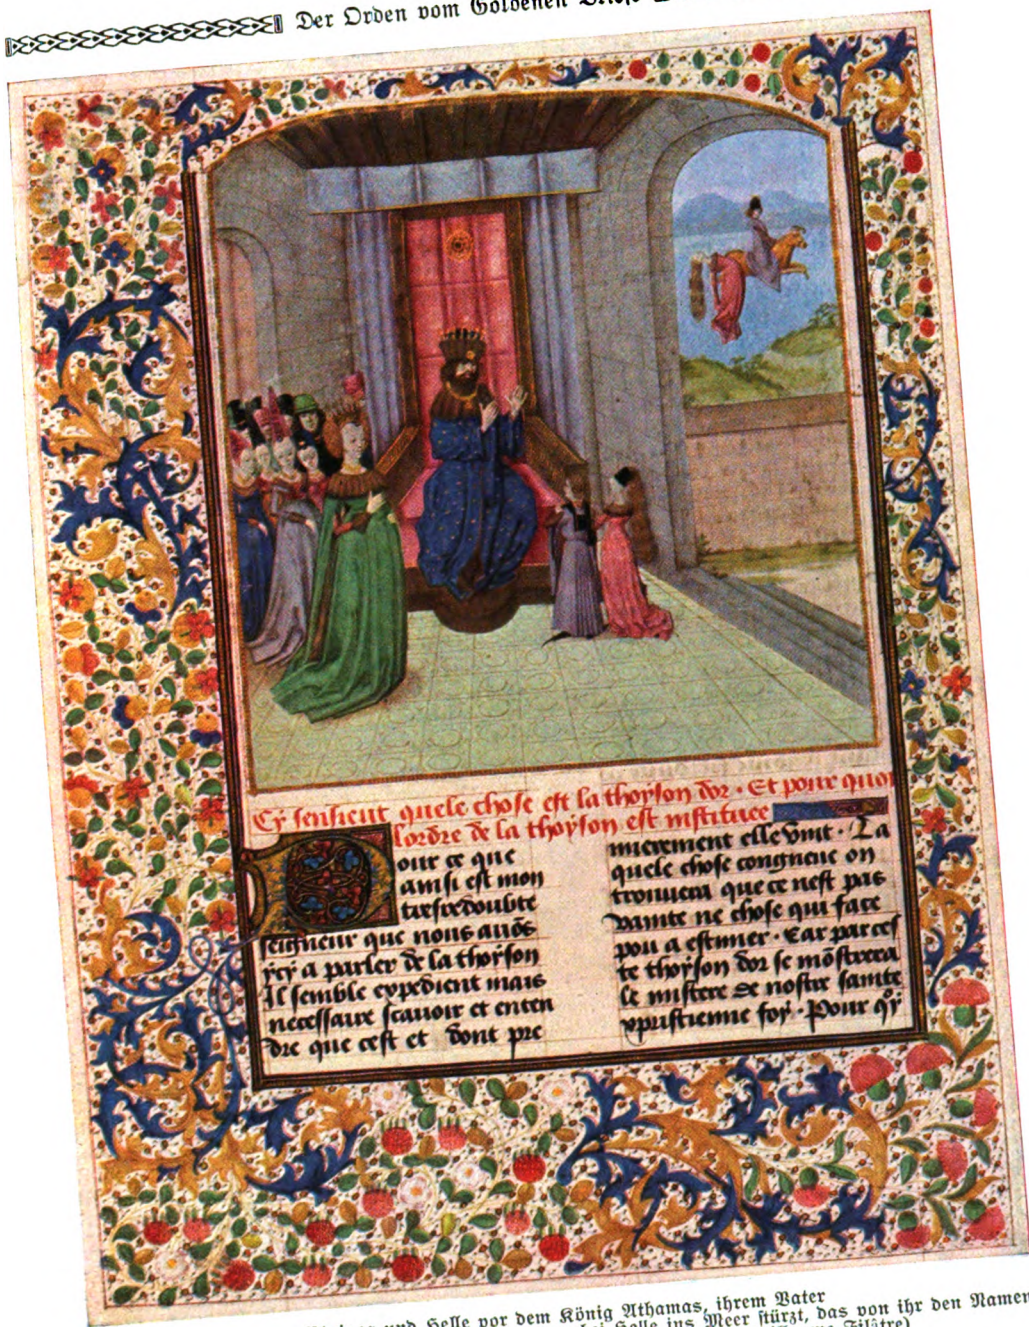 Der Orden vom Goldenen
Cy sensieut quele chose est la thoyson dor · Et pour quoi
lordre de la thoyson est institucc
Pour ce que
ainsi est mon
tresredoubte
seigneur que nous auōs
ycy a parler de la thoyson
Il semble expedient mais
necessaire scauoir et enten
dre que cest et dont pre
mierement elle vint · La
quele chose congneue on
trouuera que ce nest pas
vainte ne chose qui face
pou a estimer · Car par ces
te thoyson dor se mōstrera
le mistere de nostre sainte
xpristienne foy · Pour qͦy
und Helle vor dem König Athamas, ihrem Vater
bei Helle ins Meer stürzt, das von ihr den Namen
Filâtre)